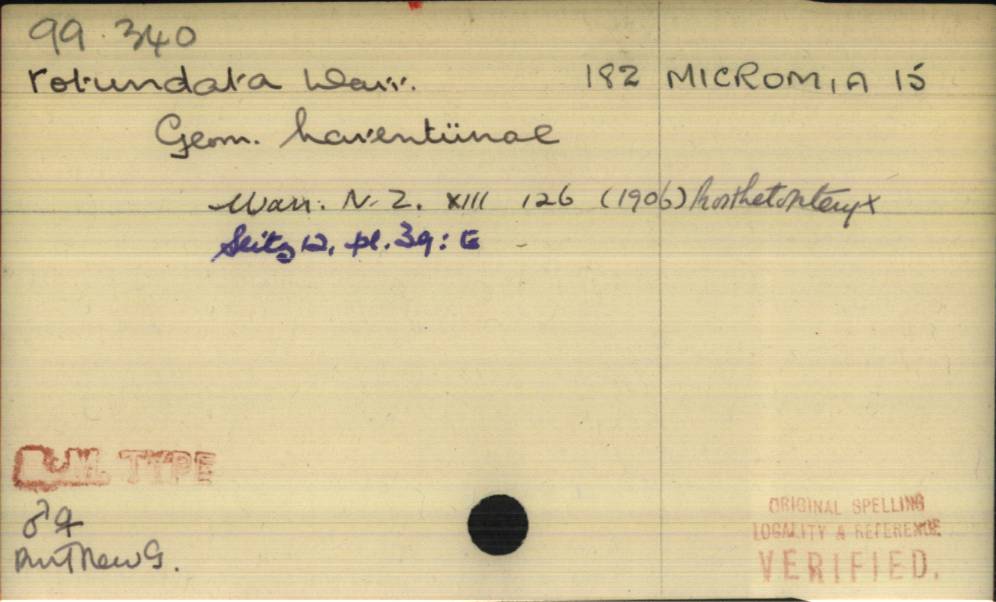 99.340
rotundata Warr. 182 MICROMIA 15
Geom. Larentiinae
Warr. N.Z. XIII 126 (1906)
Seitz 12, pl. 39: E
B.M. TYPE
♂ ♀
Brit New G.
ORIGINAL SPELLING
LOCALITY & REFERENCE
VERIFIED.